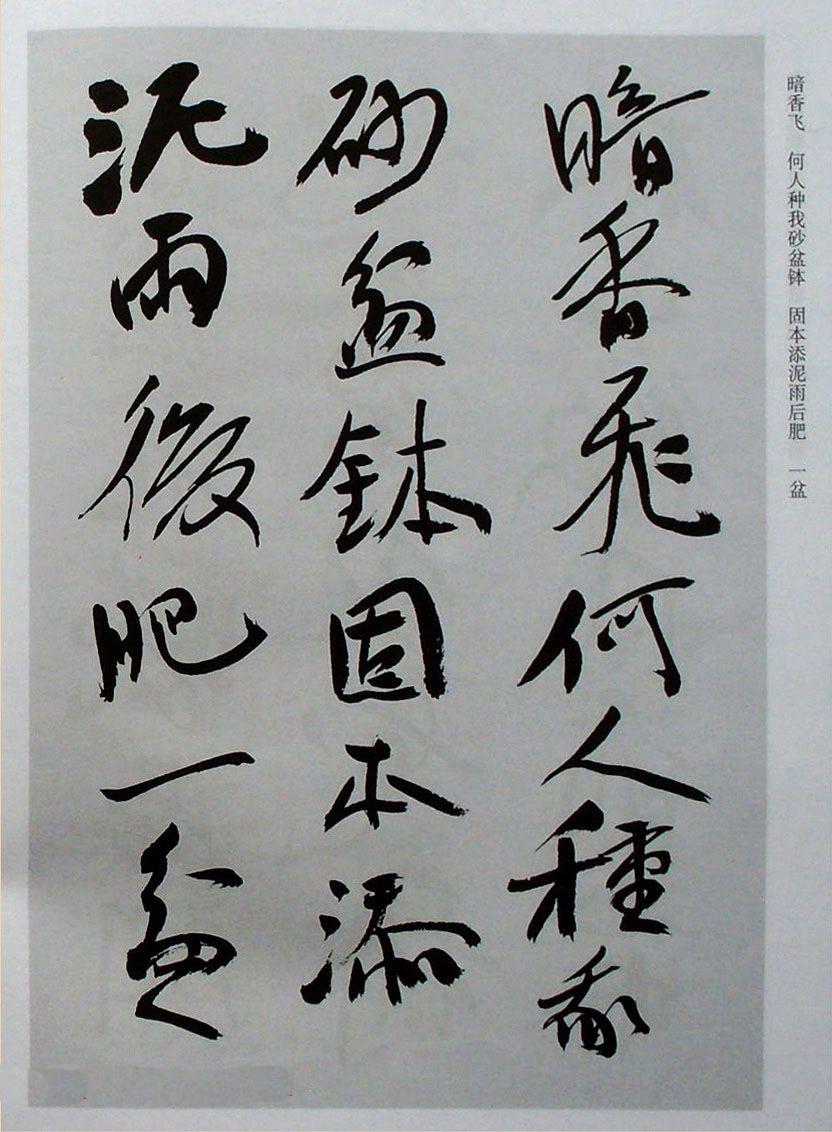 暗香飞　何人种我砂盆钵　固本添泥雨后肥　一盆
暗香飛何人種我
砂盆鉢固本添
泥雨後肥一盆